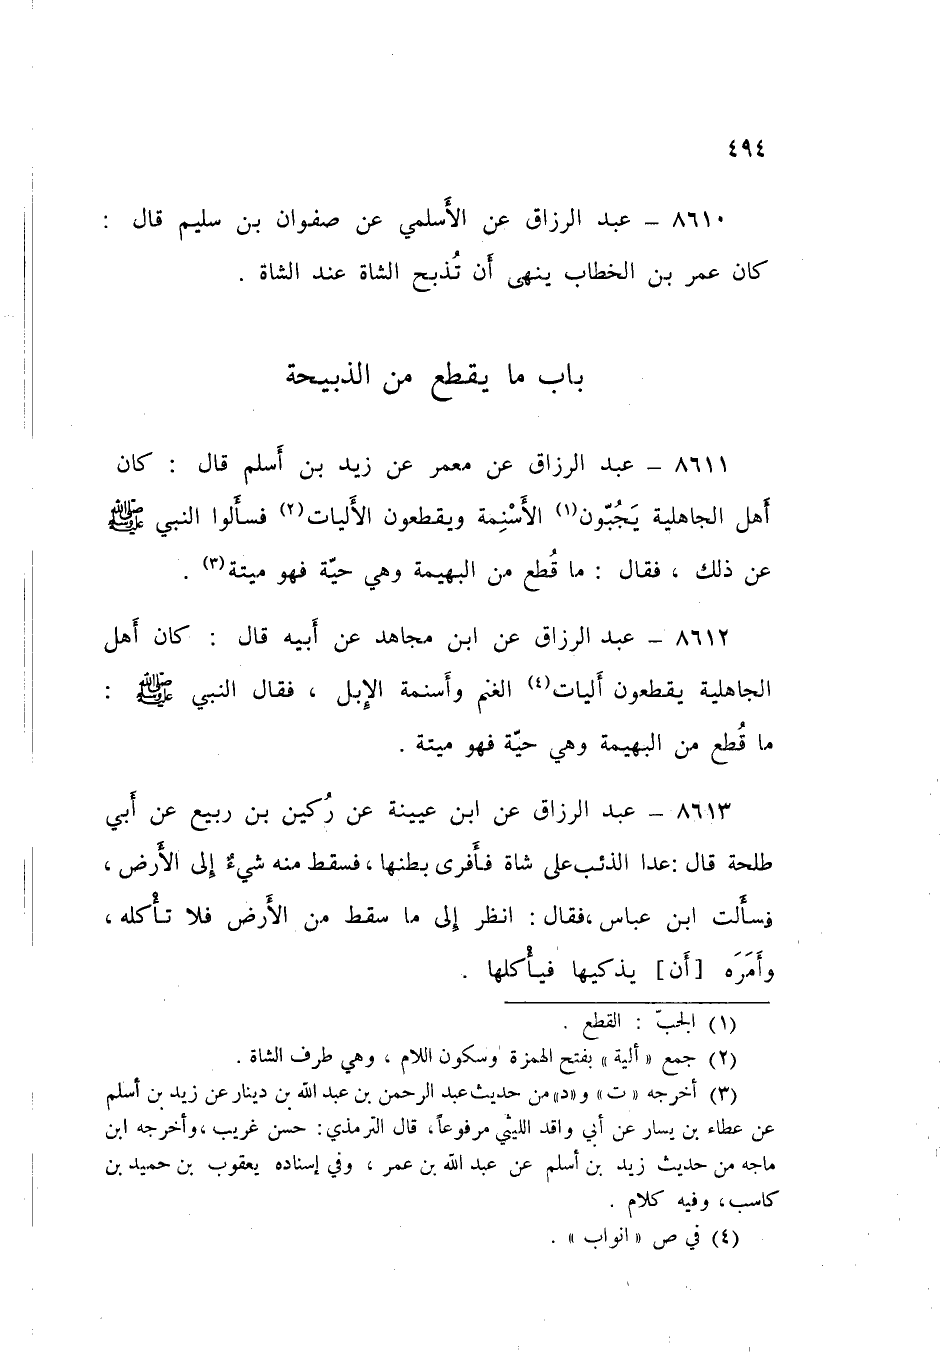 ٤٩٤
٨٦١٠ – عبد الرزاق عن الأَسلمي عن صفوان بن سليم قال :
كان عمر بن الخطاب ينهى أَن تُذبح الشاة عند الشاة .
باب ما يقطع من الذبيحة
٨٦١١ – عبد الرزاق عن معمر عن زيد بن أَسلم قال : كان
أَهل الجاهلية يَجُبّون(١) الأَسْنِمة ويقطعون الأَليات(٢) فسأَلوا النبي ﷺ
عن ذلك ، فقال : ما قُطع من البهيمة وهي حيّة فهو ميتة(٣) .
٨٦١٢ – عبد الرزاق عن ابن مجاهد عن أَبيه قال : كان أَهل
الجاهلية يقطعون أَليات(٤) الغنم وأَسنمة الإِبل ، فقال النبي ﷺ :
ما قُطع من البهيمة وهي حيّة فهو ميتة .
٨٦١٣ – عبد الرزاق عن ابن عيينة عن رُكين بن ربيع عن أَبي
طلحة قال :عدا الذئب على شاة فأَفرى بطنها ، فسقط منه شيءٌ إِلى الأَرض ،
فسأَلت ابن عباس ،فقال : انظر إِلى ما سقط من الأَرض فلا تأْكله ،
وأَمَرَه [أَن] يذكيها فيأْكلها .
(١) الجبّ : القطع .
(٢) جمع «ألية» بفتح الهمزة وسكون اللام ، وهي طرف الشاة .
(٣) أخرجه «ت» و«د» من حديث عبد الرحمن بن عبد الله بن دينار عن زيد بن أسلم
عن عطاء بن يسار عن أبي واقد الليثي مرفوعاً، قال الترمذي : حسن غريب ،وأخرجه ابن
ماجه من حديث زيد بن أسلم عن عبد الله بن عمر ، وفي إسناده يعقوب بن حميد بن
كاسب، وفيه كلام .
(٤) في ص «انواب» .